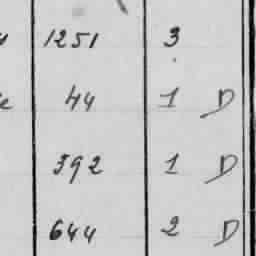 1251 3
44 1 D
392 1 D
644 2 D